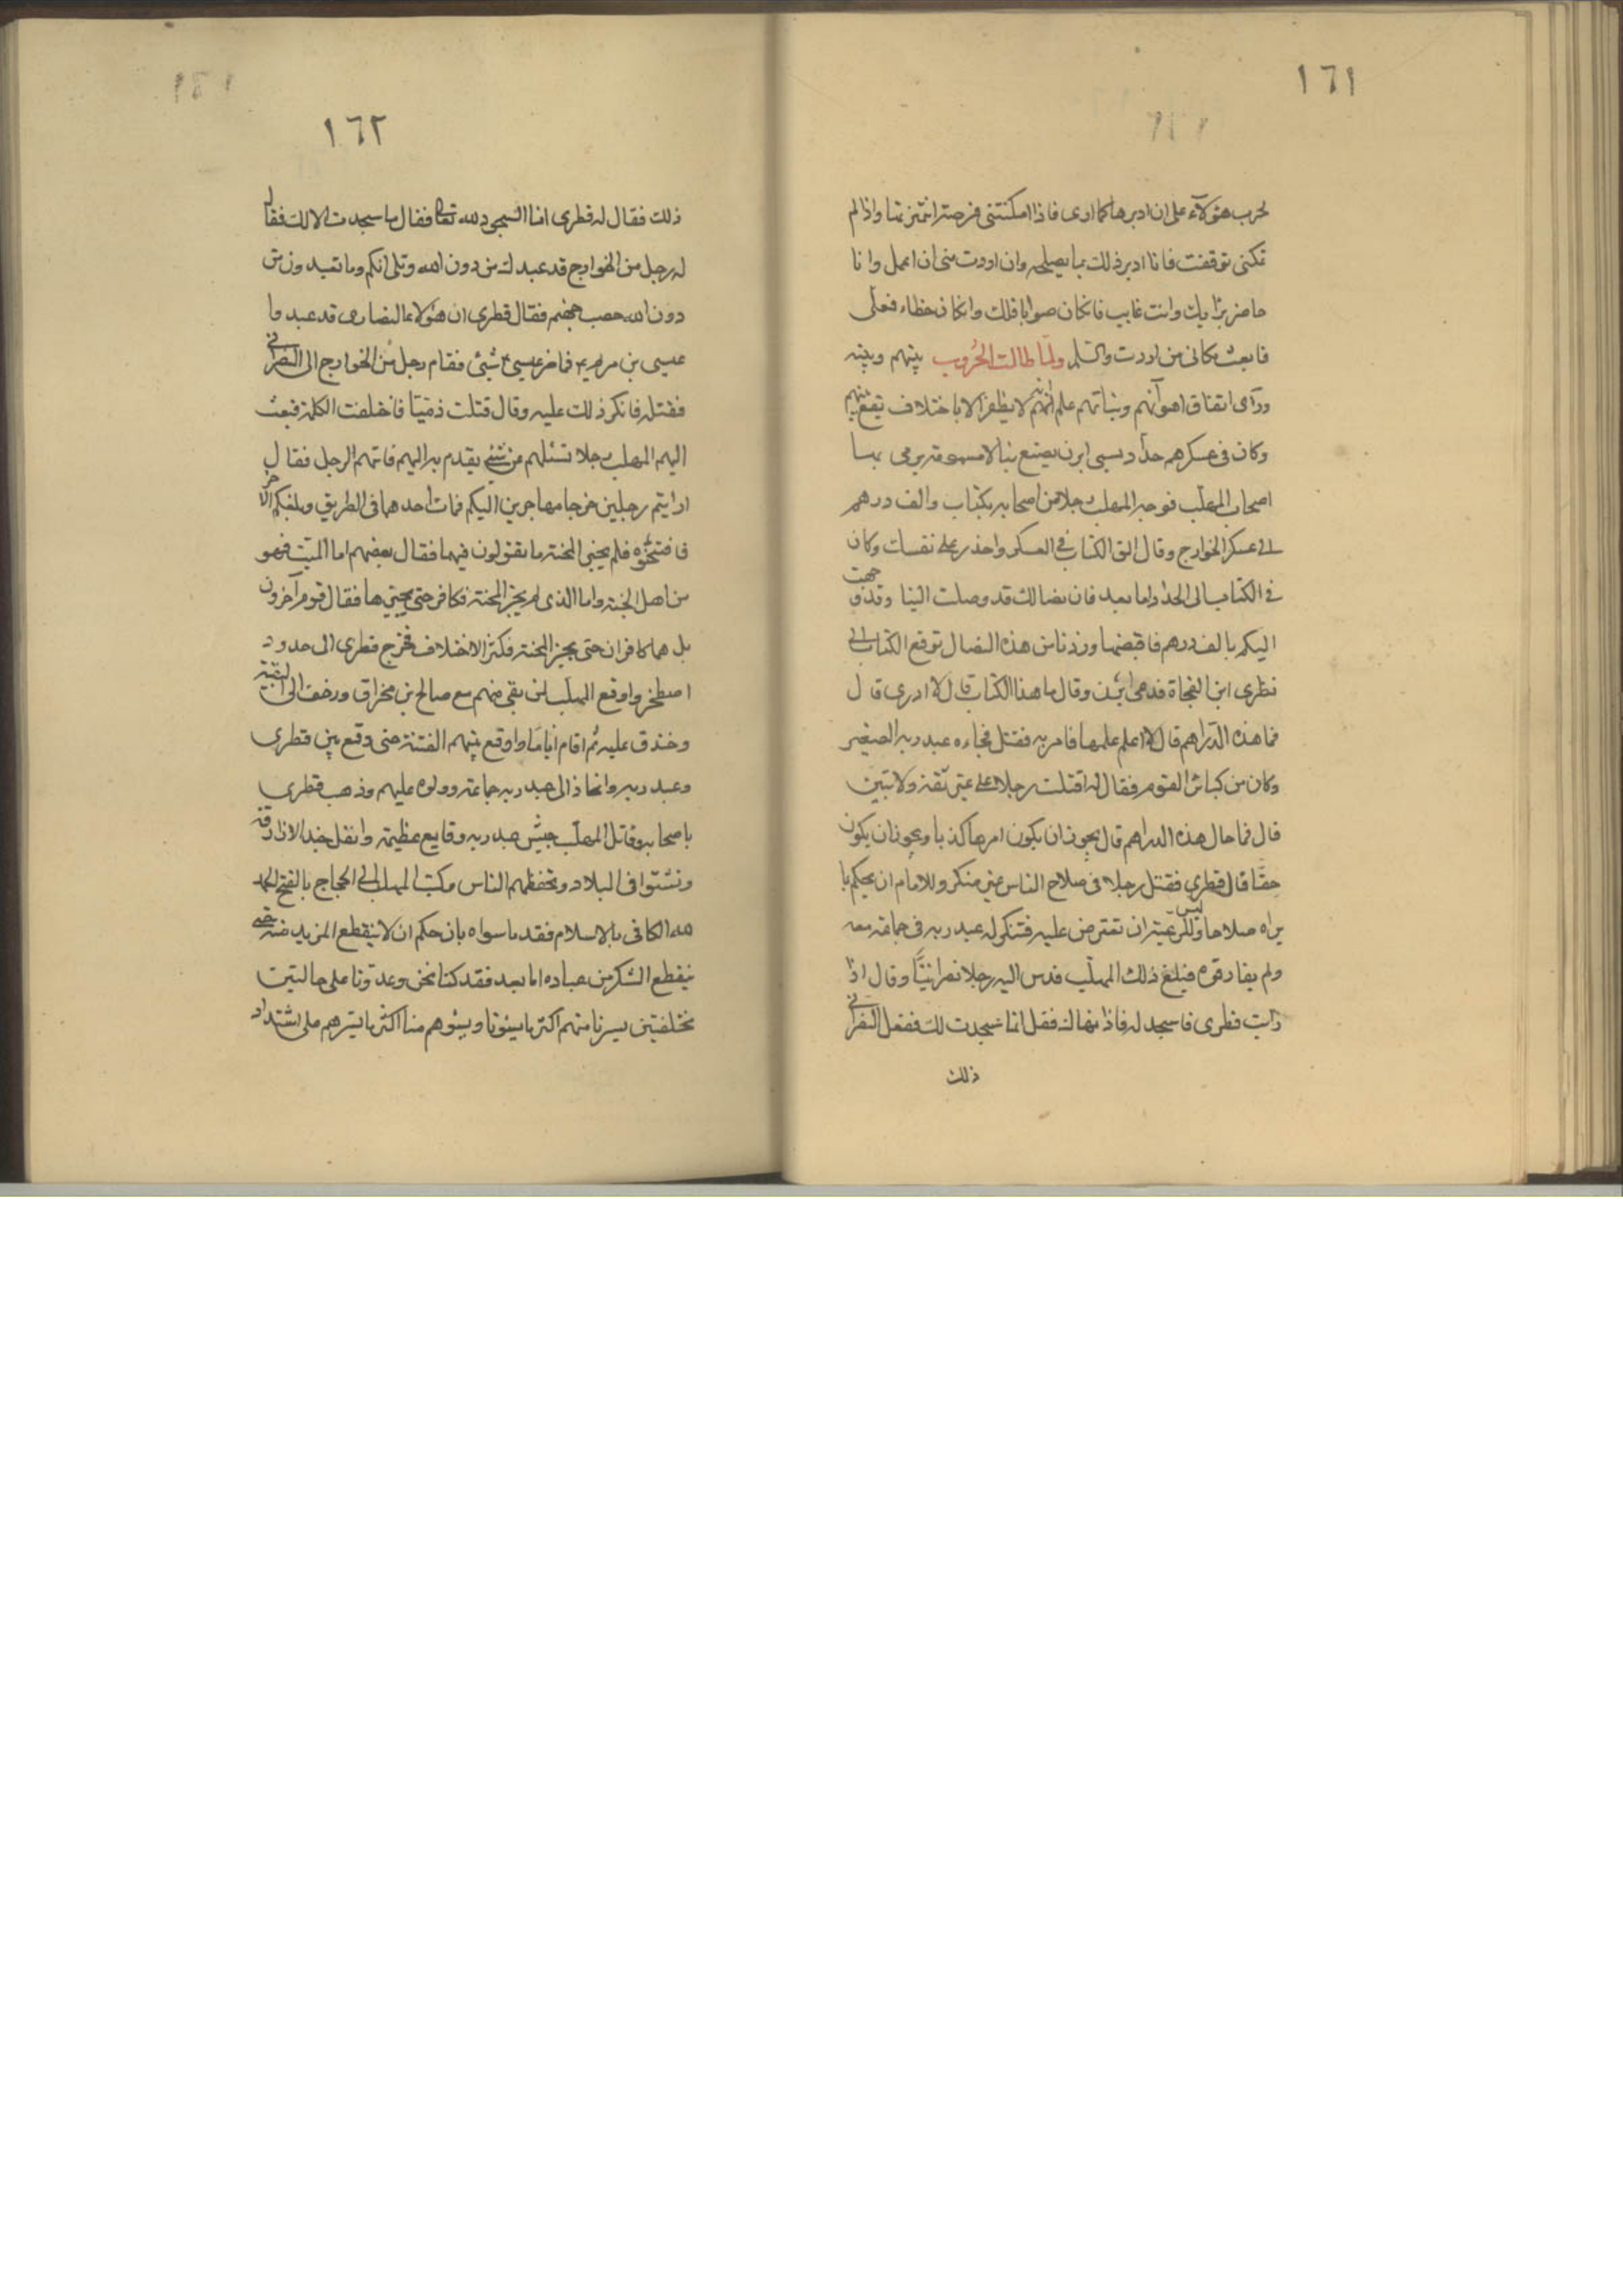 ١٦١
لحرب هؤلاء على ان ادبرها كما ارى فاذا امكنتنى فرصة انتهزتها واذا لم
تمكنى توقفت فانا ادبر ذلك بما يصلحه وان اردت منى ان اعمل وانا
حاضر برايك وانت غايب فان كان صوابا فلك وان كان خطاء فعلى
فابعث مكانى من اردت والسلم ولما طالت الحروب بينهم وبينه
وراى اتفاق اهوآئهم وثباتهم علم انهم لا يظفر الا باختلاف يقع بينهم
وكان فى عسكرهم حداد يسمى ابزن يصنع نبالا مسمومة يرمى بها
اصحاب المهلب فوجه المهلب رجلا من اصحابه بكتاب والف درهم
الى عسكر الخوارج وقال الق الكتاب فى العسكر واحذر على نفسك وكان
فى الكتاب الى الحداد اما بعد فان نضالك قد وصلت الينا وقد وجهت
اليكم بالف درهم فاقبضها وزدنا من هذه النضال توقع الكتاب الى
قطرى ابن الفجاة فدعى ابزن وقال ما هذا الكتاب قال لا ادرى قال
فما هذه الدراهم قال لا اعلم علمها فامر به فقتل فجاءه عبد ربه الصغير
وكان من كباش القوم فقال له اقتلت رجلا على غير ثقة ولا تبين
قال فما حال هذه الدراهم قال يجوز ان يكون امرها كذبا ويجوز ان يكون
حقا قال قطرى فقتل رجلا فى صلاح الناس غير منكر وللامام ان يحكم بما
يراه صلاحا وليس للرعية ان تعترض عليه فتنكر له عبد ربه فى جماعة معه
ولم يفارقوه فبلغ ذلك المهلب فدس اليه رجلا نصرانيا وقال اذا
رايت قطرى فاسجد له فاذا نهاك فقل انما سجدت لك ففعل النصرانى
ذلك
١٦٢
ذلك فقال له قطرى انما السجود لله تعالى فقال ما سجدت الا لك فقال
له رجل من الخوارج قد عبدك من دون الله وتلى انكم وما تعبدون من
دون الله حصب جهنم فقال قطرى ان هؤلاء النصارى قد عبدوا
عيسى بن مريم فما ضر عيسى شيئ فقام رجل من الخوارج الى النصرانى
فقتله فانكر ذلك عليه وقال قتلت ذميا فاختلفت الكلمة فبعث
اليهم المهلب رجلا تسئلهم عن شئ يقدم به اليهم فاتهم الرجل فقال
ارايتم رجلين خرجا مهاجرين اليكم فمات احدهما فى الطريق وبلغكم الآخر
فامتحنتموه فلم يجز المحنة ما تقولون فيهما فقال بعضهم اما الميت فهو
من اهل الجنة واما الذى لم يجز المحنة فكافر حتى يجيزها فقال قوم آخرون
بل هما كافران حتى يجيز المحنة فكثر الاختلاف فخرج قطرى الى حدود
اصطخر واوقع المهلب لمن بقى منهم مع صالح بن مخراق ورضت الى البقية
وخندق عليه ثم اقام اياما واوقع بينهم الفتنة حتى وقع بين قطرى
وعبد ربه وانحاز الى عبد ربه جماعة وولوه عليهم وذهب قطرى
باصحابه وقاتل المهلب جيش عبد ربه وقايع عظيمة وانفل حد الازارقة
وتشتتوا فى البلاد وتخطفهم الناس مكتب المهلب الى الحجاج بالفتح الحمد
لله الكافى بالاسلام فقد ما سواه بان حكم ان لا ينقطع المزيد منه حتى
ينقطع الشكر من عباده اما بعد فقد كنا نحن وعدونا على حالتين
مختلفتين يسرنا منهم اكثر ما يسؤنا ويسؤهم منا اكثر ما يسرهم على اشتداد